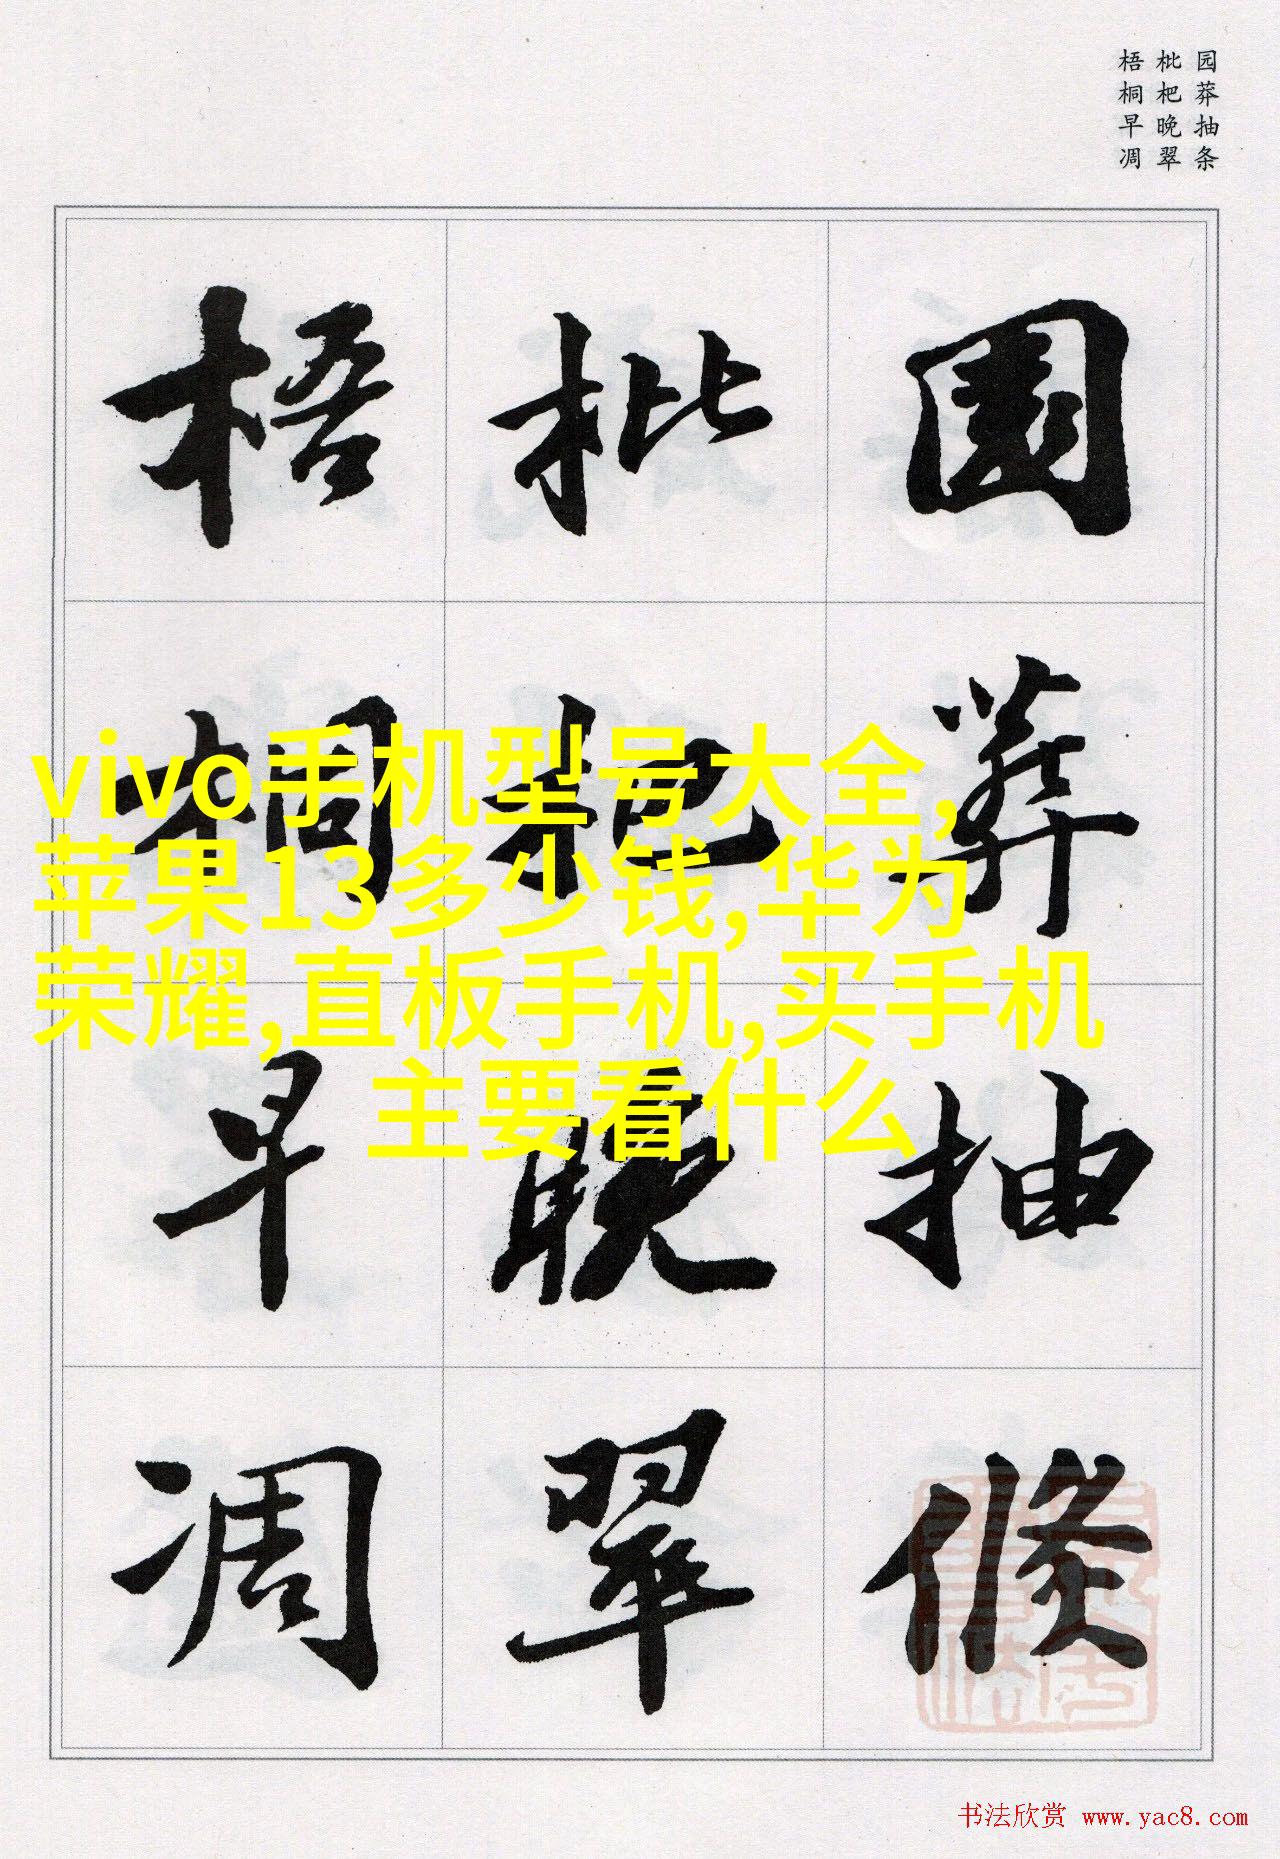 园莽抽条
枇杷晚翠
梧桐早凋
園莽抽條
枇杷晚翠
梧桐早凋
vivo手机型号大全,
苹果13多少钱,华为
荣耀,直板手机,买手机
主要看什么
书法欣赏 www.yac8.com